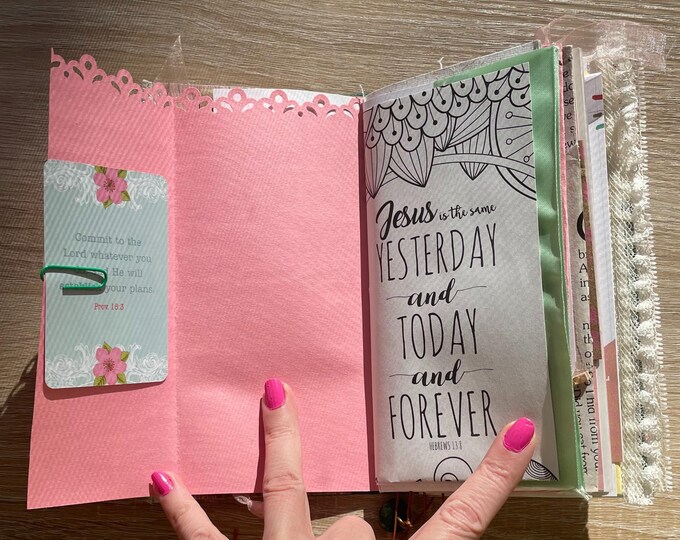 Commit to the
Lord whatever you
He will
your plans.
Prov. 16:3
Jesus is the same
YESTERDAY
and
TODAY
and
FOREVER
HEBREWS 13:8
from your